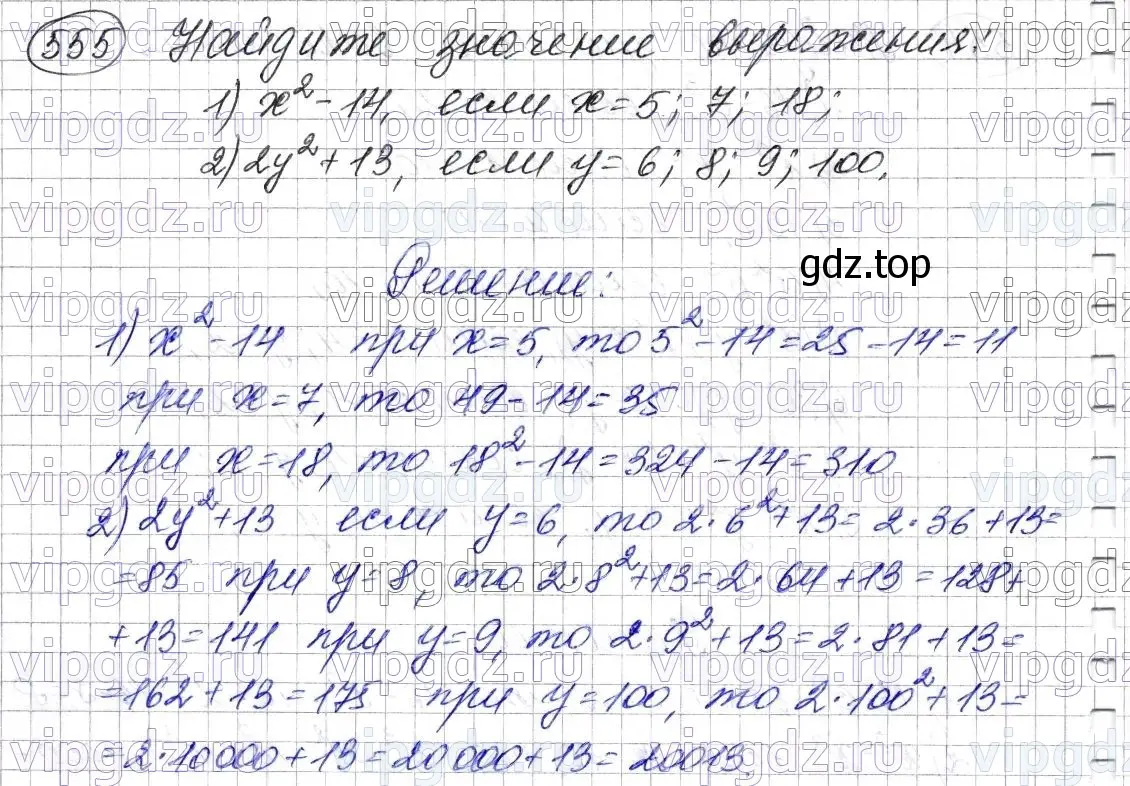 555 Найдите значение выражения:
1) x² - 14, если x = 5; 7; 18;
2) 2y² + 13, если y = 6; 8; 9; 100.
Решение:
gdz.top
1) x² - 14 при x = 5, то 5² - 14 = 25 - 14 = 11
при x = 7, то 49 - 14 = 35
при x = 18, то 18² - 14 = 324 - 14 = 310
2) 2y² + 13 если y = 6, то 2·6² + 13 = 2·36 + 13 =
= 85 при y = 8, то 2·8² + 13 = 2·64 + 13 = 128 +
+ 13 = 141 при y = 9, то 2·9² + 13 = 2·81 + 13 =
= 162 + 13 = 175 при y = 100, то 2·100² + 13 =
= 2·10000 + 13 = 20000 + 13 = 20013.
vipgdz.ru